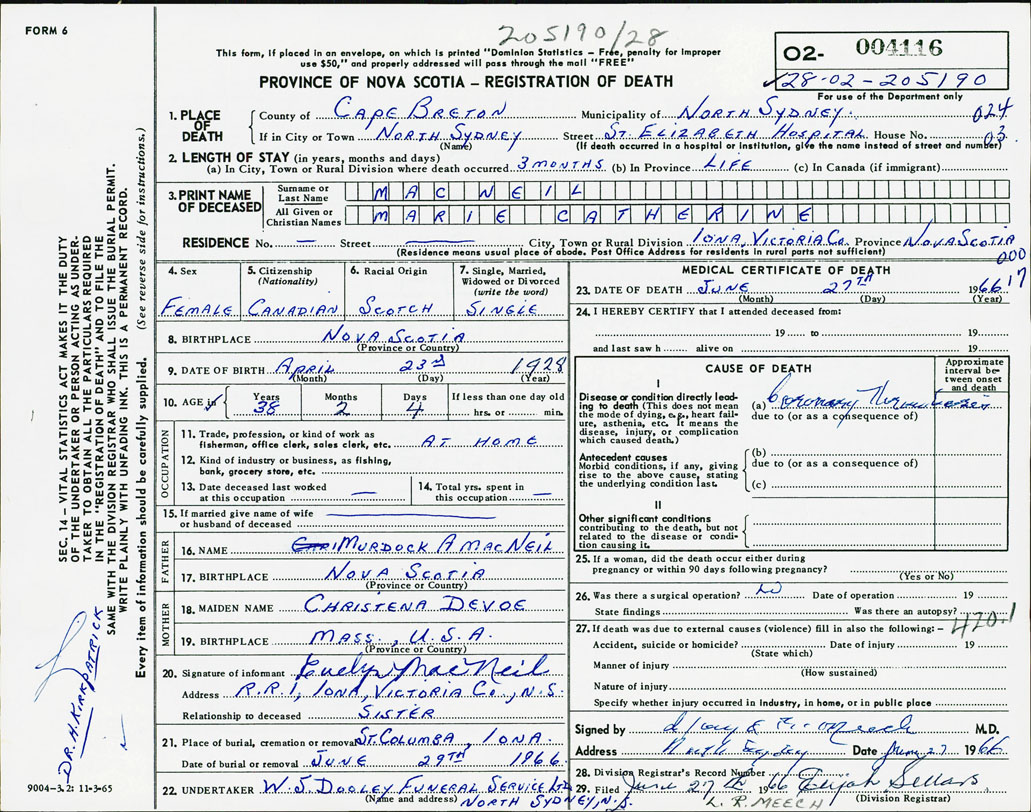 FORM 6
205190/28
This form, if placed in an envelope, on which is printed "Dominion Statistics – Free, penalty for improper
use $50," and properly addressed will pass through the mail "FREE"
PROVINCE OF NOVA SCOTIA – REGISTRATION OF DEATH
02- 004116
28-02-205190
For use of the Department only
1. PLACE OF DEATH
County of CAPE BRETON Municipality of NORTH SYDNEY. 024
If in City or Town NORTH SYDNEY Street ST ELIZABETH HOSPITAL House No. 03
(Name) (If death occurred in a hospital or institution, give the name instead of street and number)
2. LENGTH OF STAY (in years, months and days)
(a) In City, Town or Rural Division where death occurred 3 MONTHS (b) In Province LIFE (c) In Canada (if immigrant)
3. PRINT NAME OF DECEASED
Surname or Last Name MAC NEIL
All Given or Christian Names MARIE CATHERINE
RESIDENCE No. — Street — City, Town or Rural Division IONA, VICTORIA CO. Province NOVA SCOTIA
(Residence means usual place of abode. Post Office Address for residents in rural parts not sufficient)
000
17
4. Sex FEMALE
5. Citizenship (Nationality) CANADIAN
6. Racial Origin SCOTCH
7. Single, Married, Widowed or Divorced (write the word) SINGLE
8. BIRTHPLACE NOVA SCOTIA
(Province or Country)
9. DATE OF BIRTH APRIL 23rd 1928
(Month) (Day) (Year)
10. AGE in Years 38 Months 2 Days 4 If less than one day old
hrs. or min.
OCCUPATION
11. Trade, profession, or kind of work as
fisherman, office clerk, sales clerk, etc. AT HOME
12. Kind of industry or business, as fishing,
bank, grocery store, etc.
13. Date deceased last worked
at this occupation —
14. Total yrs. spent in
this occupation —
15. If married give name of wife
or husband of deceased —
FATHER
16. NAME MURDOCK A MACNEIL
17. BIRTHPLACE NOVA SCOTIA
(Province or Country)
MOTHER
18. MAIDEN NAME CHRISTENA DEVOE
19. BIRTHPLACE MASS., U.S.A.
(Province or Country)
20. Signature of informant Evelyn MacNeil
Address R.R.1, IONA, VICTORIA CO., N.S.
Relationship to deceased SISTER
21. Place of burial, cremation or removal ST. COLUMBA, IONA.
Date of burial or removal JUNE 29TH 1966.
22. UNDERTAKER W.S. DOOLEY FUNERAL SERVICE LTD
(Name and address) NORTH SYDNEY, N.S.
MEDICAL CERTIFICATE OF DEATH
23. DATE OF DEATH JUNE 27TH 1966
(Month) (Day) (Year)
24. I HEREBY CERTIFY that I attended deceased from:
19 to 19
and last saw h alive on 19
CAUSE OF DEATH
Approximate interval between onset and death
I
Disease or condition directly leading to death (This does not
mean the mode of dying, e.g., heart failure, asthenia, etc. It means the
disease, injury, or complication
which caused death.)
(a) Coronary Thrombosis
due to (or as a consequence of)
Antecedent causes
Morbid conditions, if any, giving
rise to the above cause, stating
the underlying condition last.
(b)
due to (or as a consequence of)
(c)
II
Other significant conditions
contributing to the death, but not
related to the disease or condition causing it.
25. If a woman, did the death occur either during
pregnancy or within 90 days following pregnancy?
(Yes or No)
26. Was there a surgical operation? No Date of operation 19
State findings Was there an autopsy?
420.1
27. If death was due to external causes (violence) fill in also the following: –
Accident, suicide or homicide? Date of injury 19
(State which)
Manner of injury
(How sustained)
Nature of injury
Specify whether injury occurred in industry, in home, or in public place
Signed by Meech M.D.
Address North Sydney Date June 27 1966
28. Division Registrar's Record Number
29. Filed June 27th 1966 Elijah Sellars
L.P. MEECH (Division Registrar)
SEC. 14 – VITAL STATISTICS ACT MAKES IT THE DUTY
OF THE UNDERTAKER OR PERSON ACTING AS UNDERTAKER TO OBTAIN ALL THE PARTICULARS REQUIRED
IN THE "REGISTRATION OF DEATH" AND TO FILE THE
SAME WITH THE DIVISION REGISTRAR WHO SHALL ISSUE THE BURIAL PERMIT.
WRITE PLAINLY WITH UNFADING INK. THIS IS A PERMANENT RECORD.
Every item of information should be carefully supplied. (See reverse side for instructions.)
DR. H. KIRKPATRICK
9004-3.2: 11-3-65